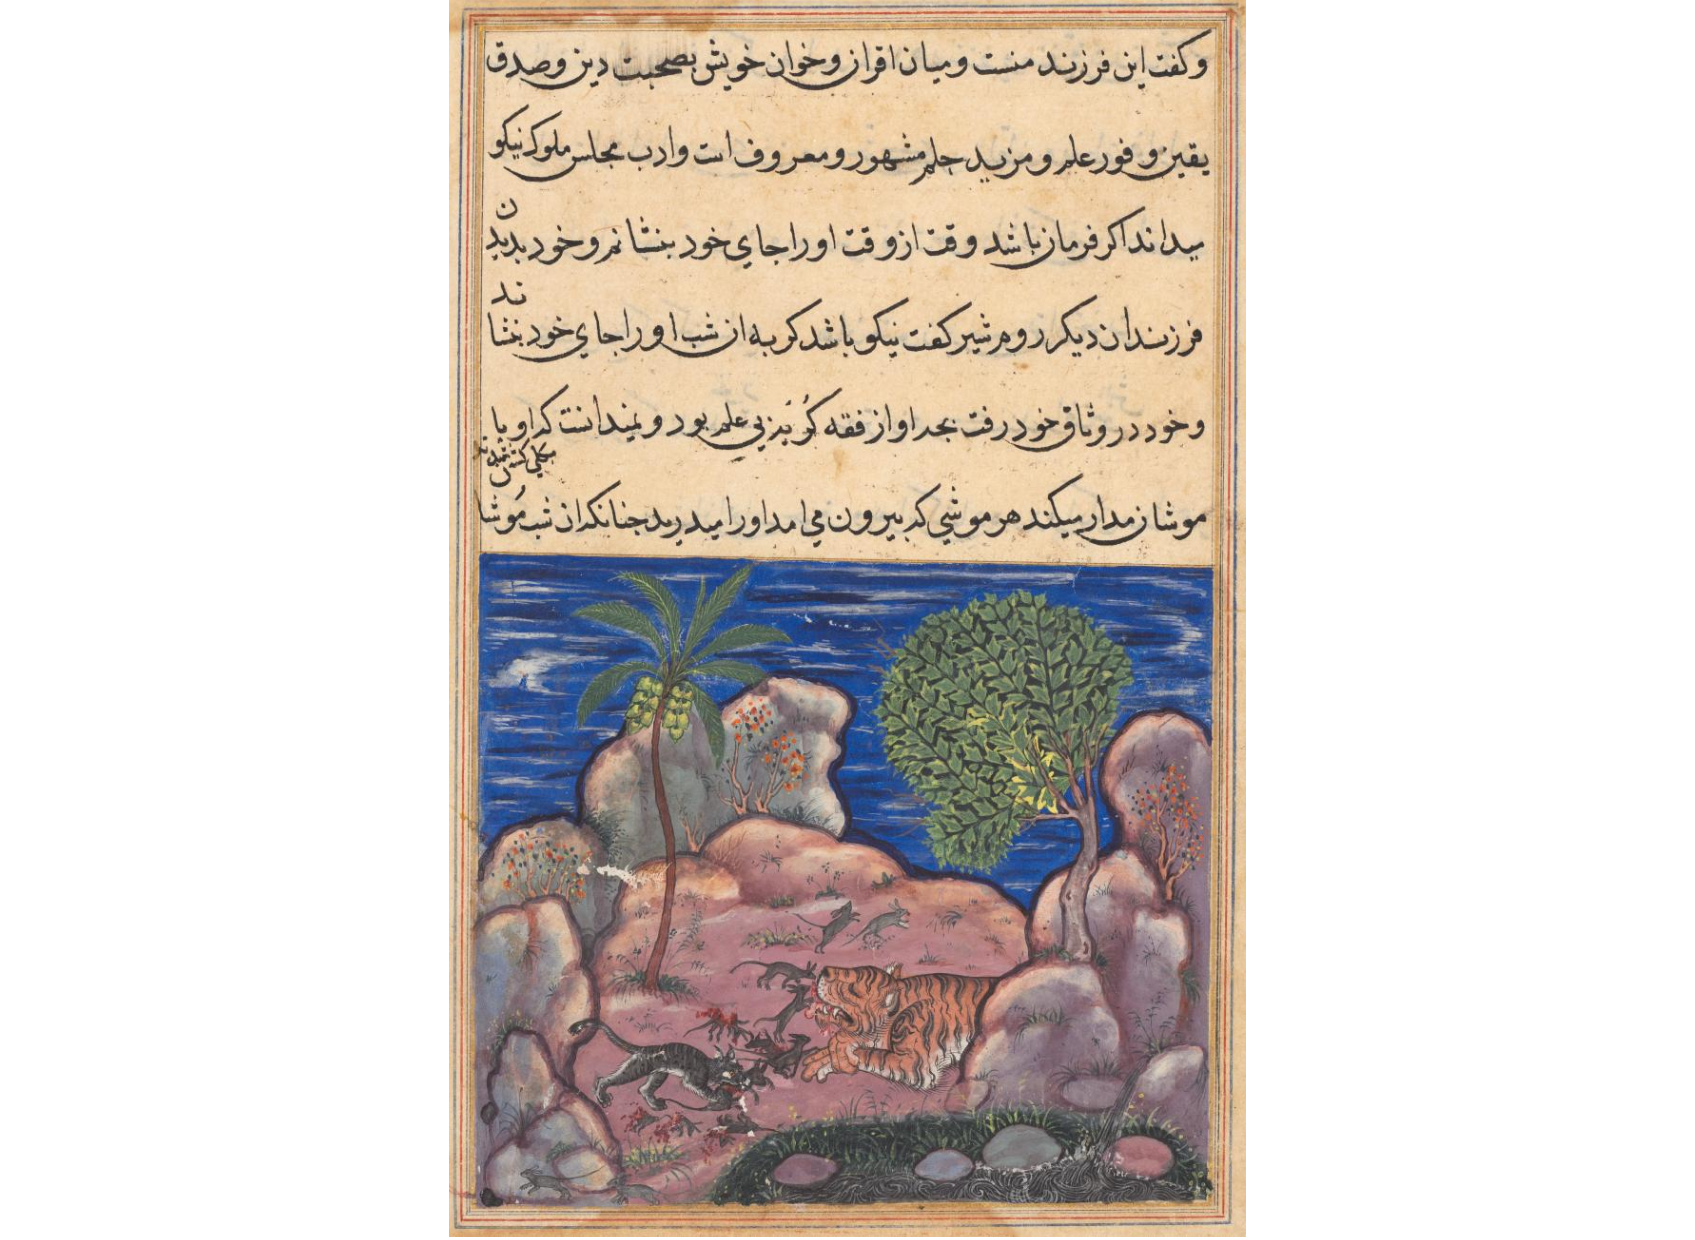 وکفت این فرزند منست و میان اقران و خوان خویش بصحبت دین و صدق
یقین و فور علم و مزید حلم مشهور و معروف است و ادب مجلس ملوک نیکو
میداند اکر فرمان باشد وقت از وقت او را جای خود بنشانم و خود بدیدن
فرزندان دیکر روم شیر کفت نیکو باشد کربه ان شب او را جای خود بنشاند
و خود در وثاق خود رفت بجه او از فقه کربه بی علم بود و نمیدانست که او با
موشان مدار میکند هر موشی که بیرون می امد او را میدرید جنانکه ان شب موشا
بکلی کشته شدند